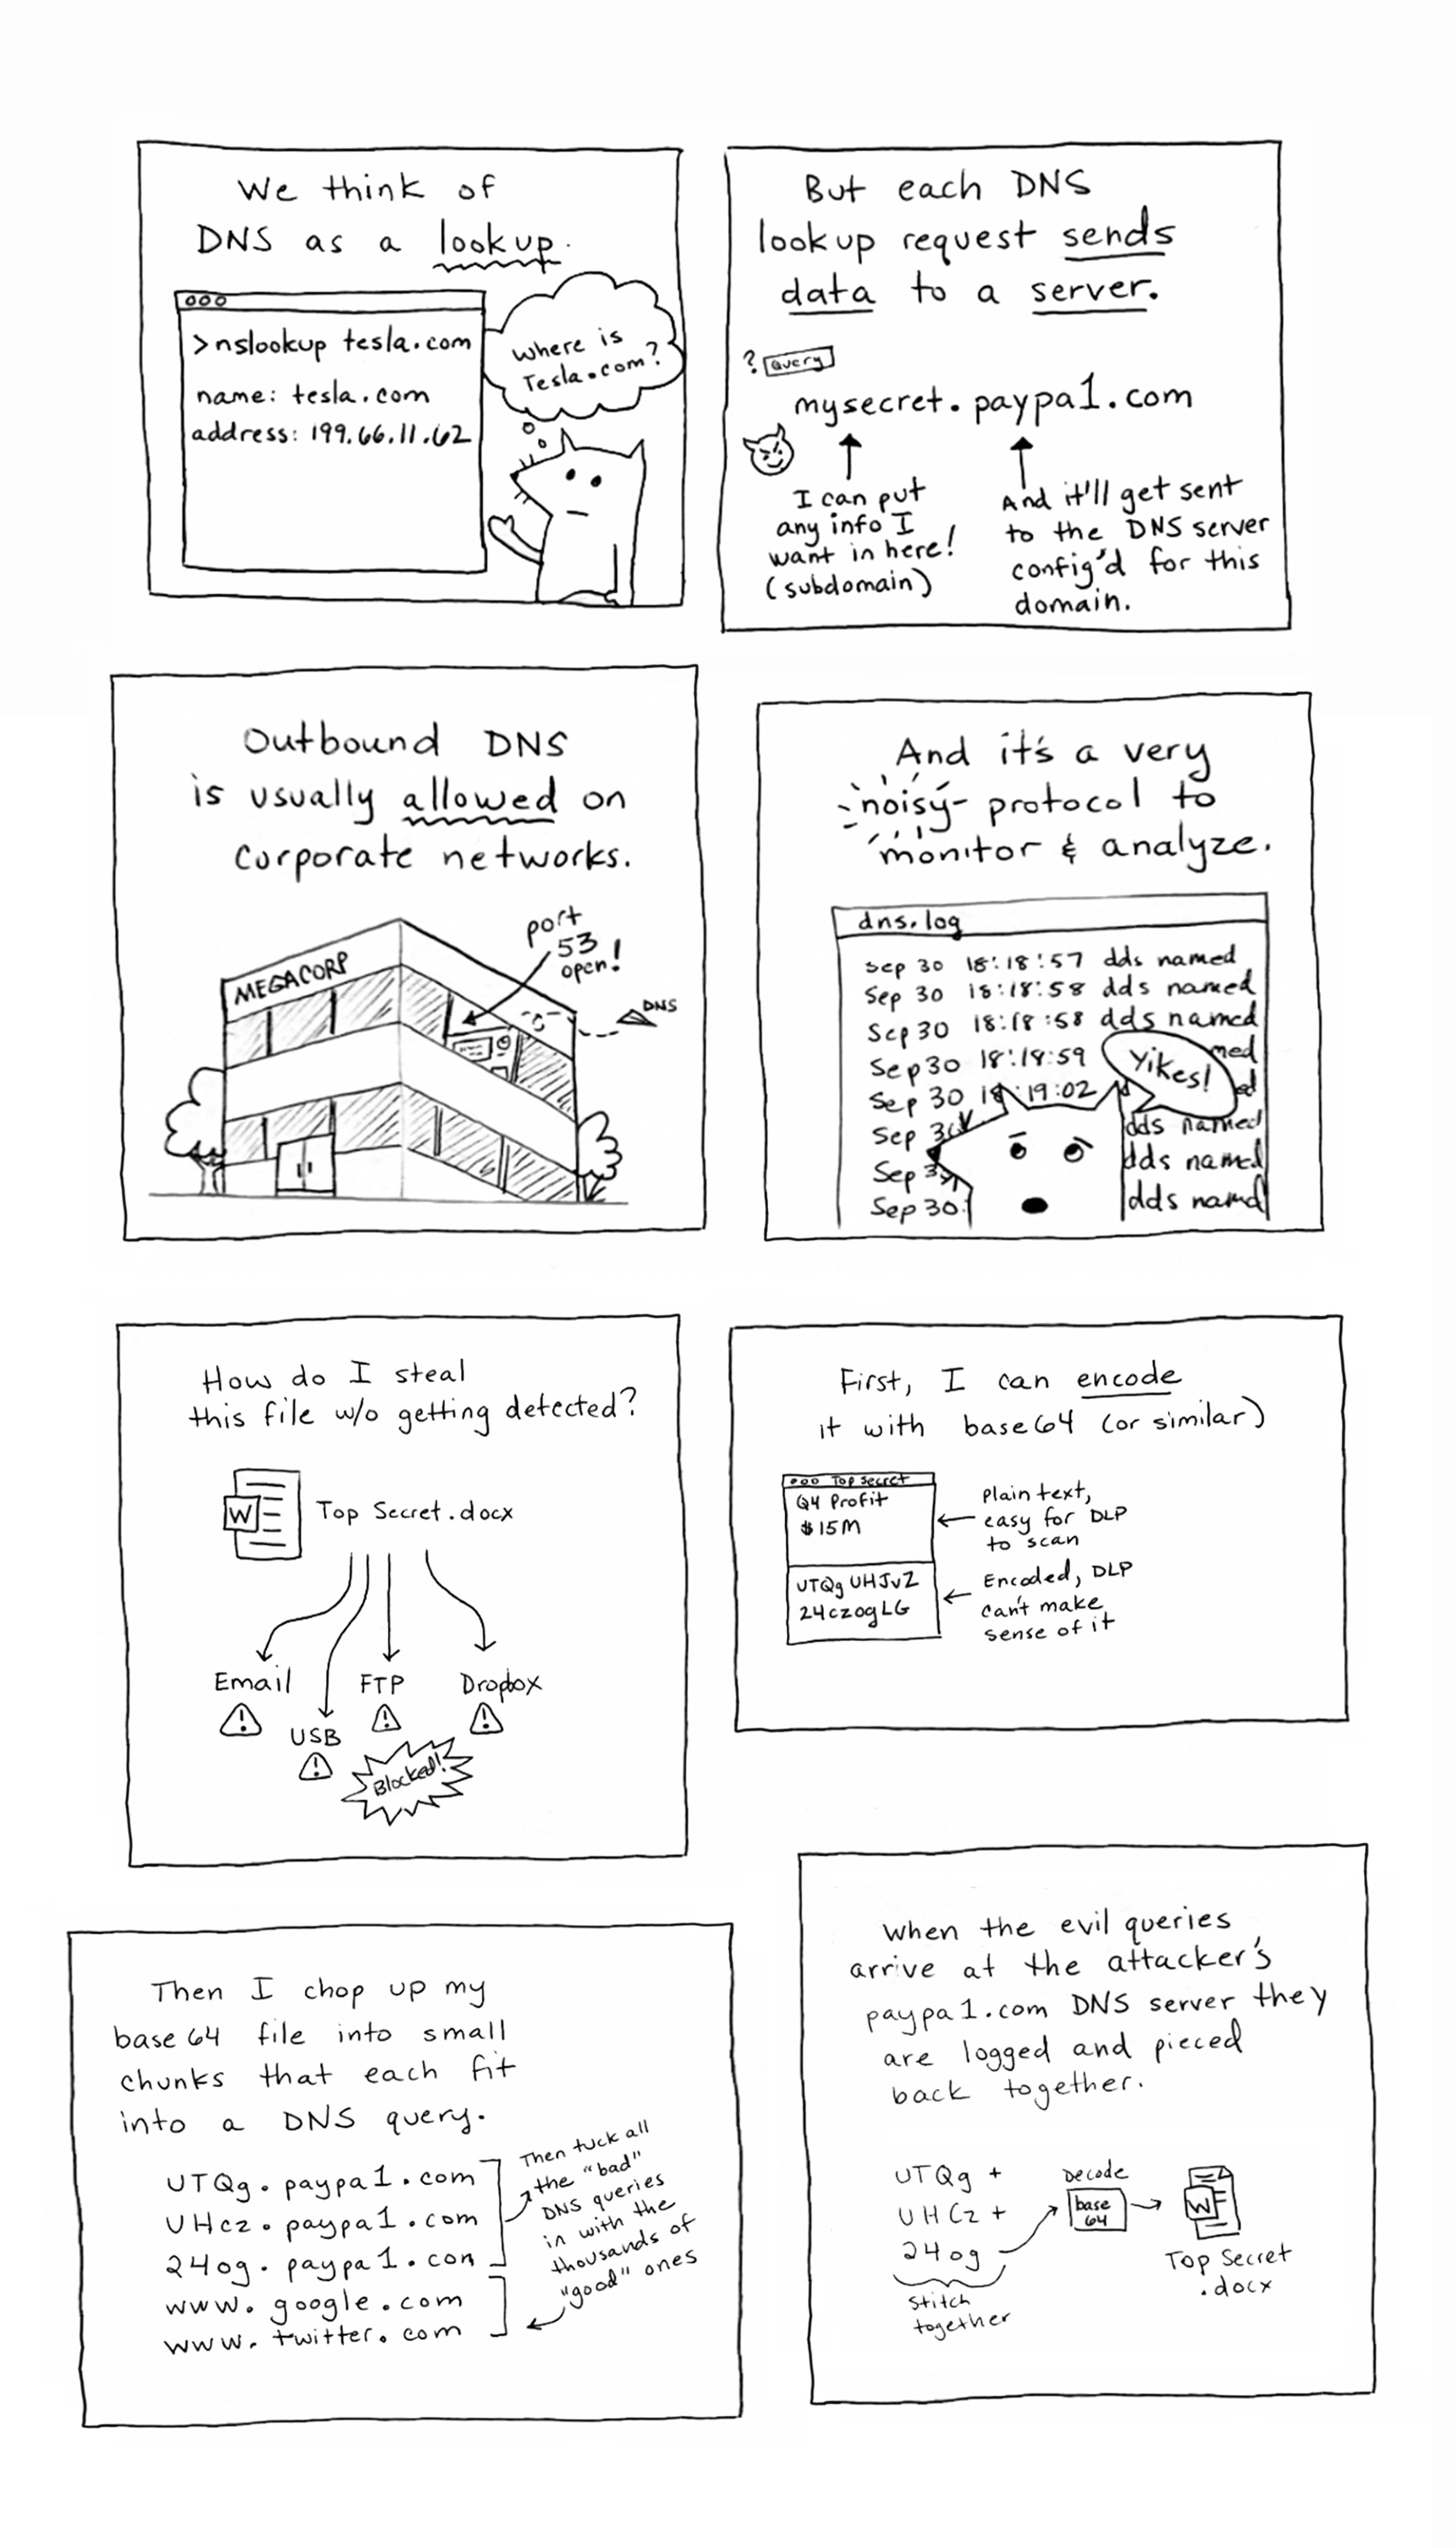 We think of
DNS as a lookup.
>nslookup tesla.com
name: tesla.com
address: 199.66.11.62
Where is
Tesla.com?
But each DNS
lookup request sends
data to a server.
? Query
mysecret.paypa1.com
I can put
any info I
want in here!
(subdomain)
And it'll get sent
to the DNS server
config'd for this
domain.
Outbound DNS
is usually allowed on
corporate networks.
MEGACORP
port
53
open!
DNS
And it's a very
noisy protocol to
monitor & analyze.
dns.log
Sep 30 18:18:57 dds named
Sep 30 18:18:58 dds named
Sep 30 18:18:58 dds named
Sep 30 18:18:59 med
Sep 30 18:19:02 ed
Sep 30 dds named
Sep 3 dds named
Sep 30: dds named
Yikes!
How do I steal
this file w/o getting detected?
W
Top Secret.docx
Email
USB
FTP
Dropbox
Blocked!
First, I can encode
it with base64 (or similar)
Top Secret
Q4 Profit
$15M
UTQg UHJvZ
24czogLG
Plain text,
easy for DLP
to scan
Encoded, DLP
can't make
sense of it
Then I chop up my
base64 file into small
chunks that each fit
into a DNS query.
UTQg.paypa1.com
UHcz.paypa1.com
24og.paypa1.com
www.google.com
www.twitter.com
Then tuck all
the "bad"
DNS queries
in with the
thousands of
"good" ones
When the evil queries
arrive at the attacker's
paypa1.com DNS server they
are logged and pieced
back together.
UTQg +
UHCz +
24og
Stitch
together
Decode
base
64
W
Top Secret
.docx